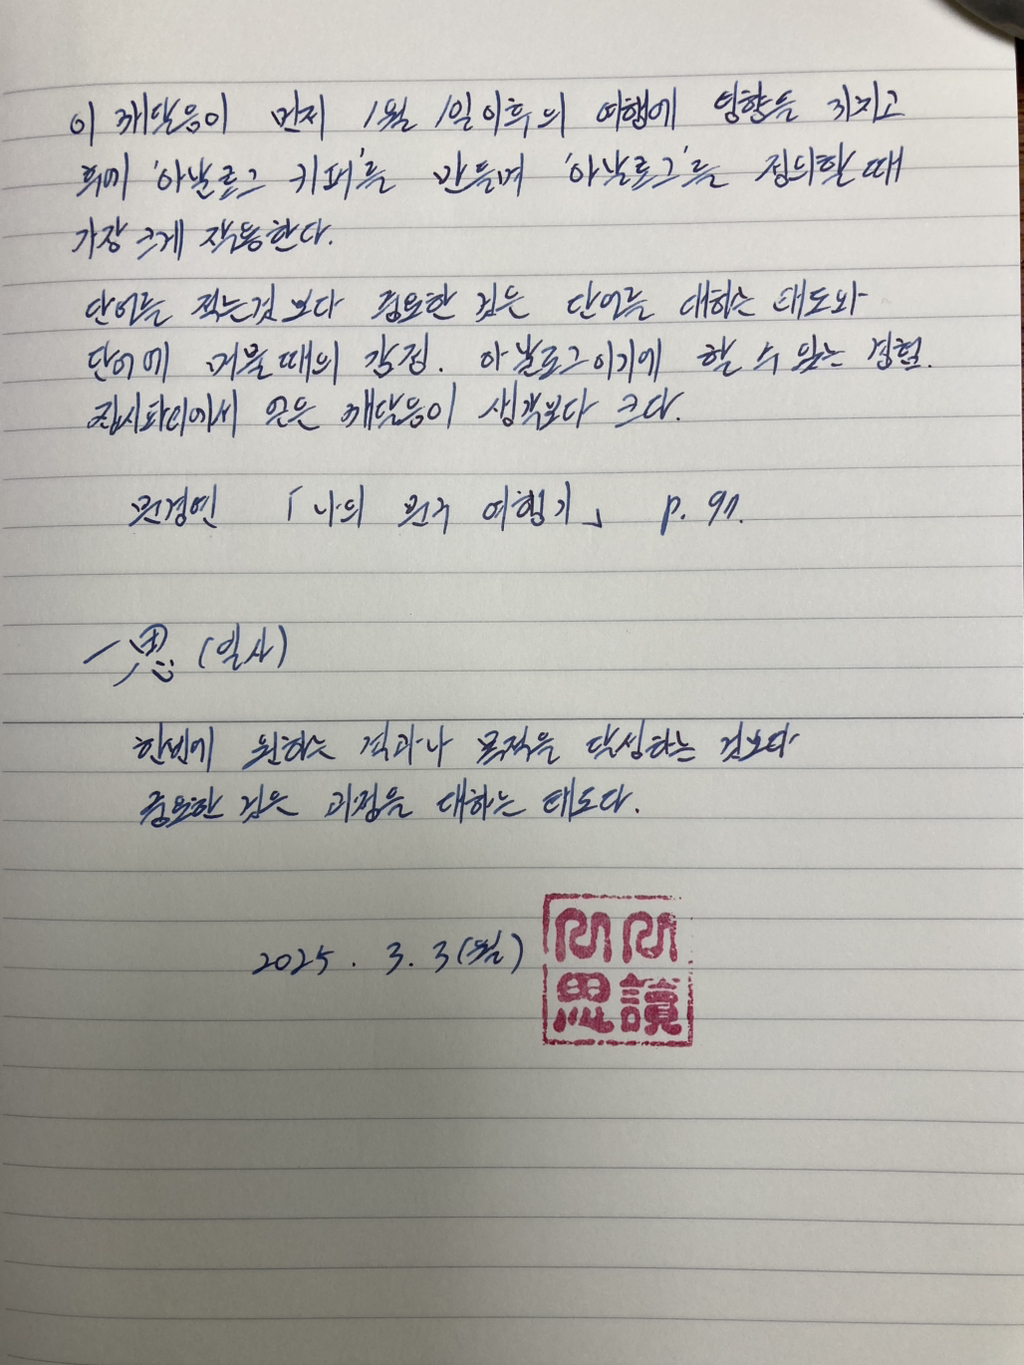 이 깨달음이 먼저 1월 1일 이후의 여행에 영향을 끼치고
후에 '아날로그 키퍼'를 만들며 '아날로그'를 정의할 때
가장 크게 작용한다.
단어를 적는것 보다 중요한 것은 단어를 대하는 태도와
단어에 머물 때의 감정. 아날로그이기에 할 수 있는 경험.
집시파리에서 얻은 깨달음이 생각보다 크다.
문경연 「나의 문구 여행기」 p. 97.
一思 (일사)
한번에 원하는 결과나 목적을 달성하는 것보다
중요한 것은 과정을 대하는 태도다.
2025. 3. 3(월)
思讀